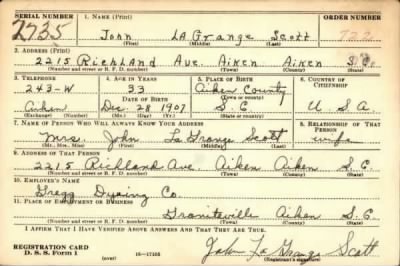 SERIAL NUMBER 1. NAME (Print) ORDER NUMBER
2735 John La Grange Scott 722
(First) (Middle) (Last)
2. ADDRESS (Print)
2215 Richland Ave. Aiken Aiken S.C.
(Number and street or R. F. D. number) (Town) (County) (State)
3. TELEPHONE 4. AGE IN YEARS 5. PLACE OF BIRTH 6. COUNTRY OF CITIZENSHIP
243-W 33 Aiken County
DATE OF BIRTH (Town or county)
Aiken Dec. 28 1907 S.C. U S A
(Exchange) (Number) (Mo.) (Day) (Yr.) (State or country)
7. NAME OF PERSON WHO WILL ALWAYS KNOW YOUR ADDRESS 8. RELATIONSHIP OF THAT PERSON
Mrs. John La Grange Scott wife
(Mr., Mrs., Miss) (First) (Middle) (Last)
9. ADDRESS OF THAT PERSON
2215 Richland Ave. Aiken Aiken S.C.
(Number and street or R. F. D. number) (Town) (County) (State)
10. EMPLOYER'S NAME
Gregg Dyeing Co
11. PLACE OF EMPLOYMENT OR BUSINESS
Graniteville Aiken S.C.
(Number and street or R. F. D. number) (Town) (County) (State)
I AFFIRM THAT I HAVE VERIFIED ABOVE ANSWERS AND THAT THEY ARE TRUE.
REGISTRATION CARD
D. S. S. Form 1 (over) 16—17105 John La Grange Scott
(Registrant's signature)